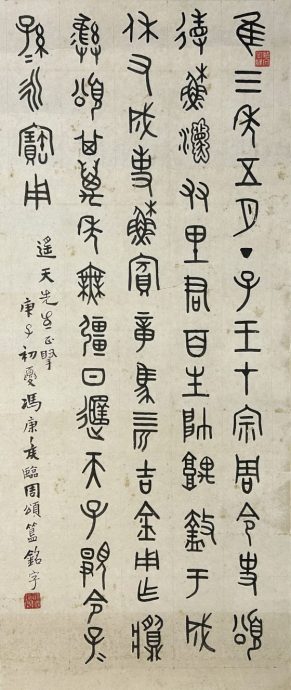 隹三年五月丁巳王才宗周令史頌
省穌友里君百生帥盩于成
休又成事穌賓章馬四匹吉金用乍䵼
彝頌其萬年無疆日遟天子顯令子=
孫=永寶用
遥天先生正
庚子初夏馮康矦臨周頌簋銘字